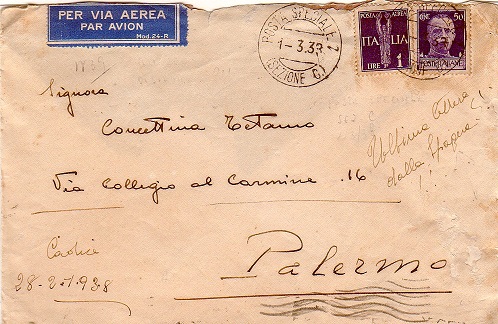 PER VIA AEREA
PAR AVION
Mod. 24-R
POSTA SPECIALE 2
1-3.38
(SEZIONE C.)
POSTA AEREA
ITALIA
LIRE 1
CENT. 50
POSTE ITALIANE
1938
Signora
Concettina Tetamo
Via Collegio al Carmine 16
Ultima lettera
dalla Spagna!
!!
Cadice
28-2-1938
Palermo